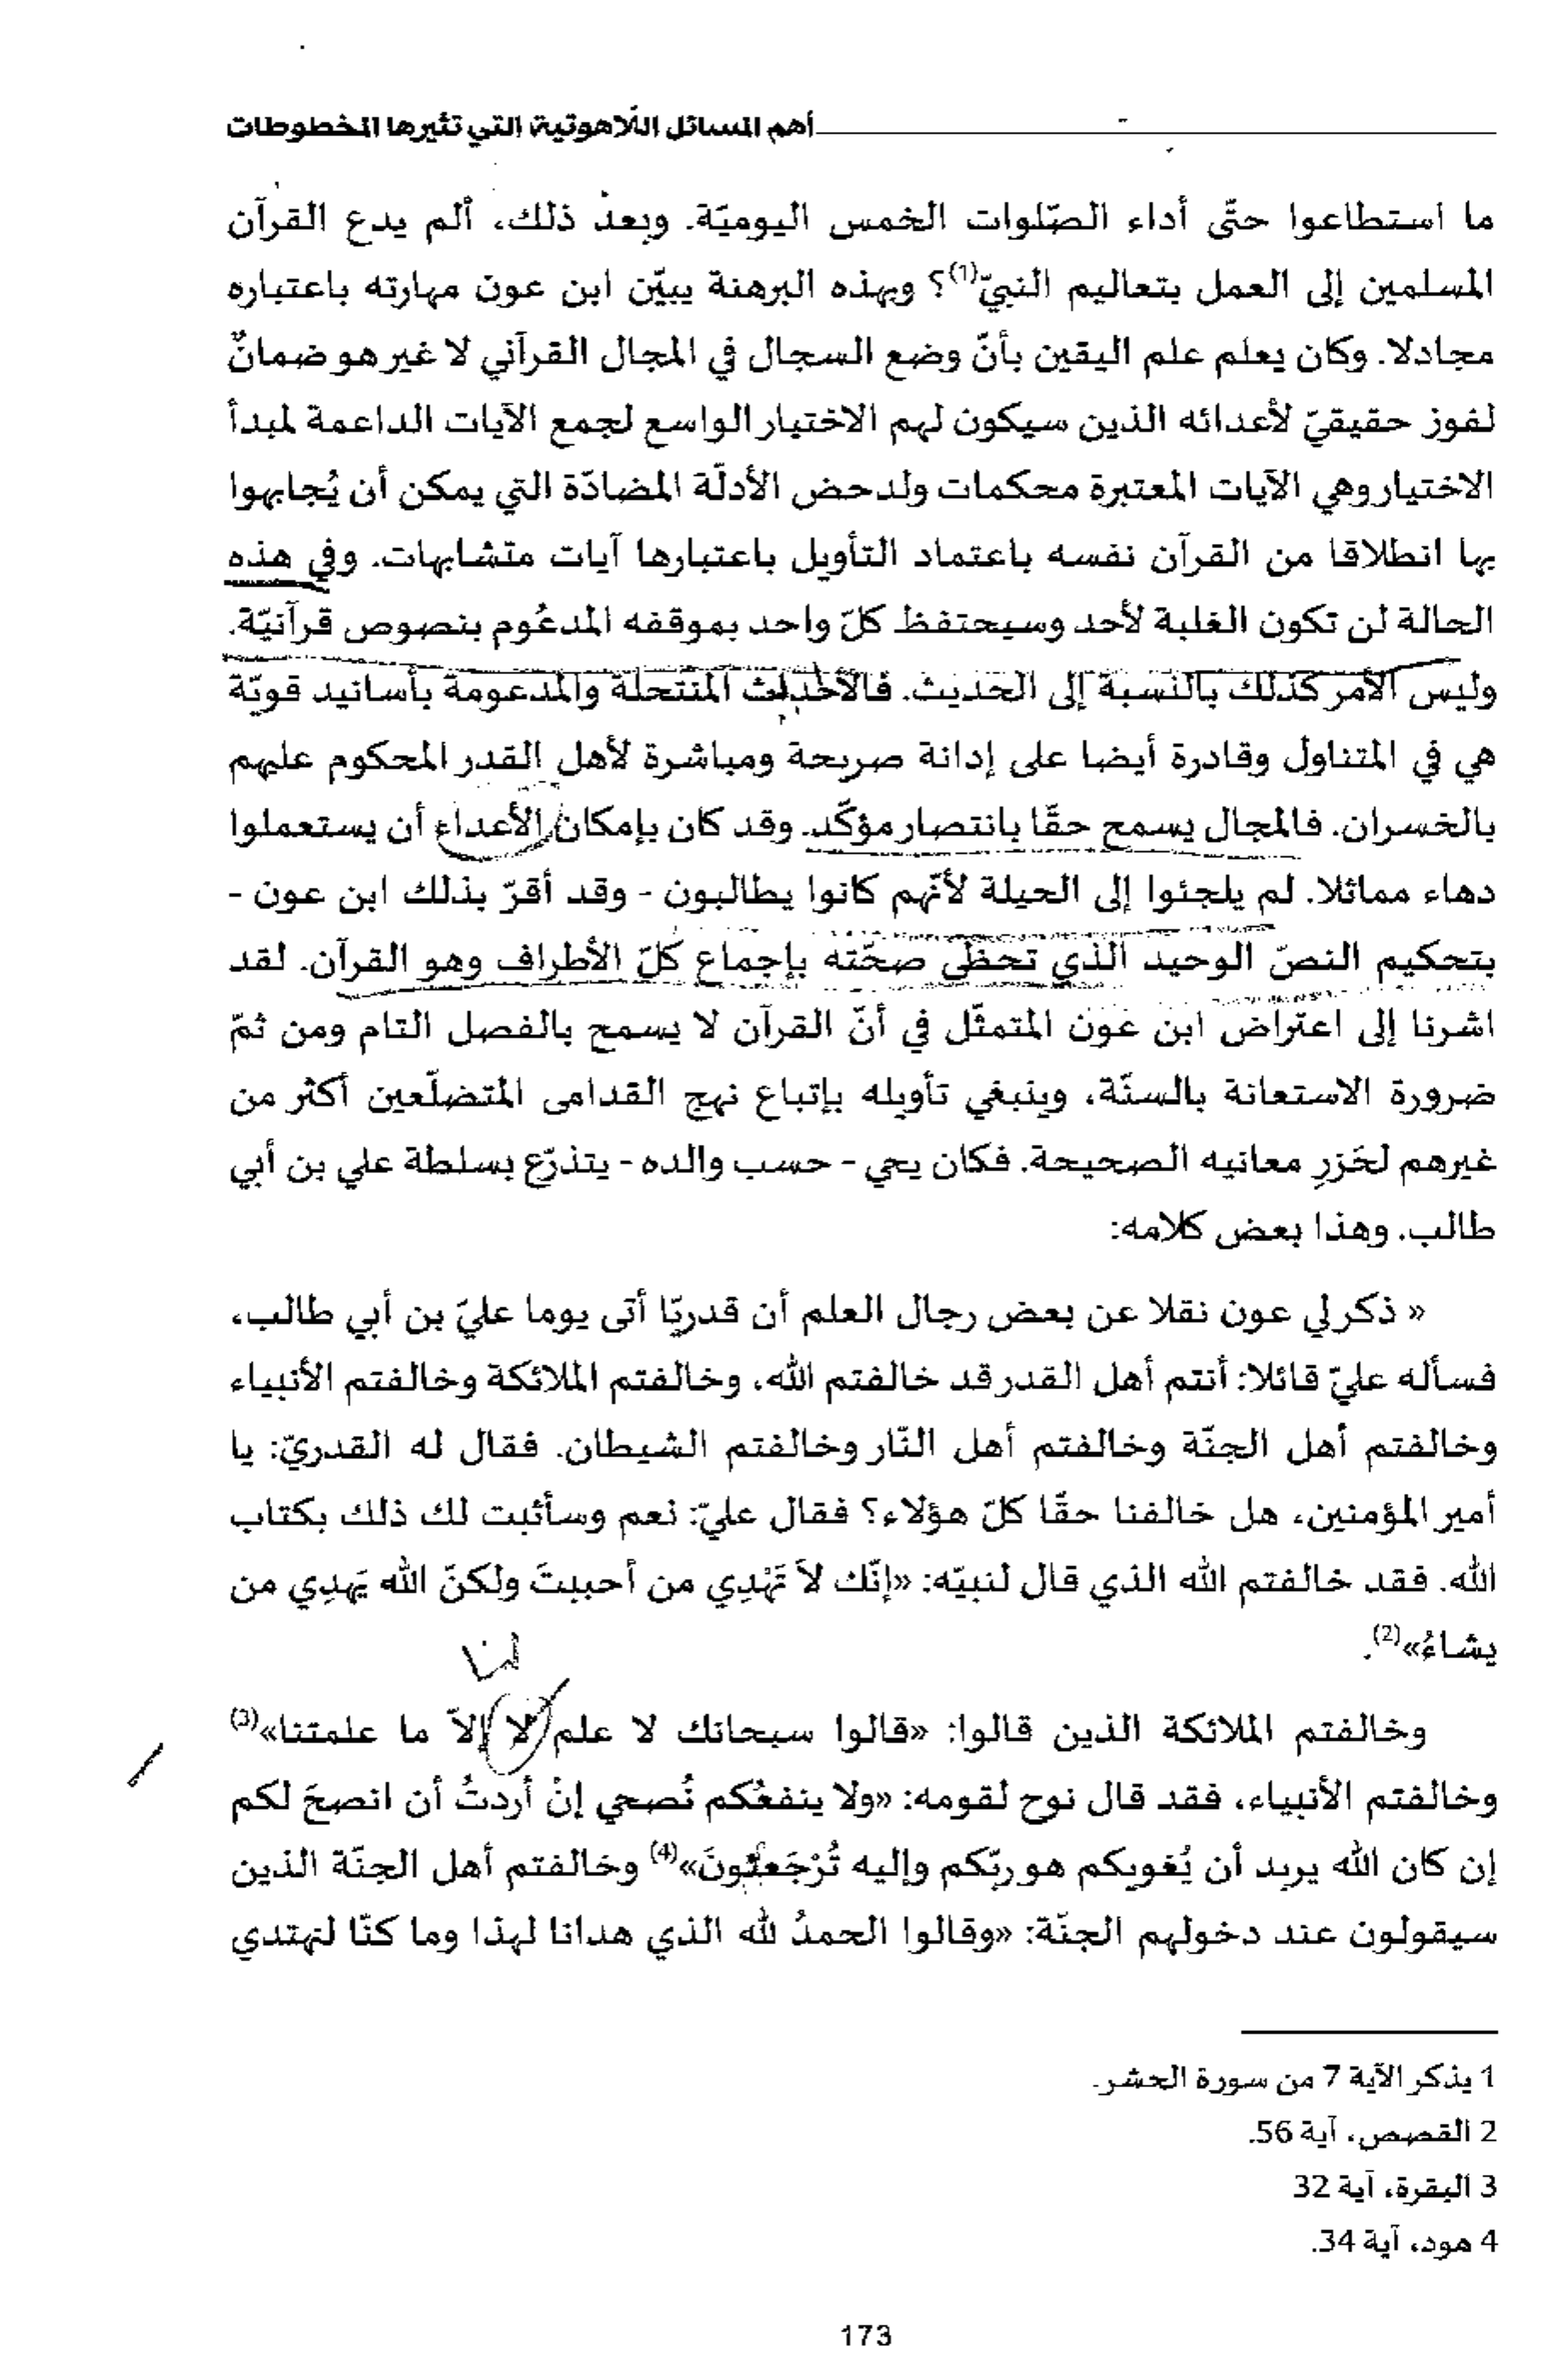 أهم المسائل اللّاهوتية التي تثيرها المخطوطات
ما استطاعوا حتّى أداء الصّلوات الخمس اليوميّة. وبعد ذلك، ألم يدع القرآن
المسلمين إلى العمل بتعاليم النبيّ(1)؟ وبهذه البرهنة يبيّن ابن عون مهارته باعتباره
مجادلا. وكان يعلم علم اليقين بأنّ وضع السجال في المجال القرآني لا غير هو ضمانٌ
لفوز حقيقيّ لأعدائه الذين سيكون لهم الاختيار الواسع لجمع الآيات الداعمة لمبدأ
الاختيار وهي الآيات المعتبرة محكمات ولدحض الأدلّة المضادّة التي يمكن أن يُجابهوا
بها انطلاقا من القرآن نفسه باعتماد التأويل باعتبارها آيات متشابهات. وفي هذه
الحالة لن تكون الغلبة لأحد وسيحتفظ كلّ واحد بموقفه المدعُوم بنصوص قرآنيّة.
وليس الأمر كذلك بالنسبة إلى الحديث. فالأحاديث المنتحلة والمدعومة بأسانيد قويّة
هي في المتناول وقادرة أيضا على إدانة صريحة ومباشرة لأهل القدر المحكوم عليهم
بالخسران. فالمجال يسمح حقّا بانتصار مؤكّد. وقد كان بإمكان الأعداء أن يستعملوا
دهاء مماثلا. لم يلجئوا إلى الحيلة لأنّهم كانوا يطالبون - وقد أقرّ بذلك ابن عون -
بتحكيم النصّ الوحيد الذي تحظى صحّته بإجماع كلّ الأطراف وهو القرآن. لقد
اشرنا إلى اعتراض ابن عون المتمثّل في أنّ القرآن لا يسمح بالفصل التام ومن ثمّ
ضرورة الاستعانة بالسنّة، وينبغي تأويله بإتباع نهج القدامى المتضلّعين أكثر من
غيرهم لحَزرِ معانيه الصحيحة. فكان يحي - حسب والده - يتذرّع بسلطة علي بن أبي
طالب. وهذا بعض كلامه:
« ذكر لي عون نقلا عن بعض رجال العلم أن قدريّا أتى يوما عليّ بن أبي طالب،
فسأله عليّ قائلا: أنتم أهل القدر قد خالفتم الله، وخالفتم الملائكة وخالفتم الأنبياء
وخالفتم أهل الجنّة وخالفتم أهل النّار وخالفتم الشيطان. فقال له القدريّ: يا
أمير المؤمنين، هل خالفنا حقّا كلّ هؤلاء؟ فقال عليّ: نعم وسأثبت لك ذلك بكتاب
الله. فقد خالفتم الله الذي قال لنبيّه: «إنّك لاَ تَهْدِي من أحببتَ ولكنّ الله يَهدِي من
يشاءُ»(2).
لنا
وخالفتم الملائكة الذين قالوا: «قالوا سبحانك لا علم لا إلاّ ما علمتنا»(3)
وخالفتم الأنبياء، فقد قال نوح لقومه: «ولا ينفعُكم نُصحي إنْ أردتُ أن انصحَ لكم
إن كان الله يريد أن يُغويكم هو ربّكم وإليه تُرْجَعُونَ»(4) وخالفتم أهل الجنّة الذين
سيقولون عند دخولهم الجنّة: «وقالوا الحمدُ لله الذي هدانا لهذا وما كنّا لنهتدي
1 يذكر الآية 7 من سورة الحشر.
2 القصص، آية 56.
3 البقرة، آية 32
4 هود، آية 34.
173